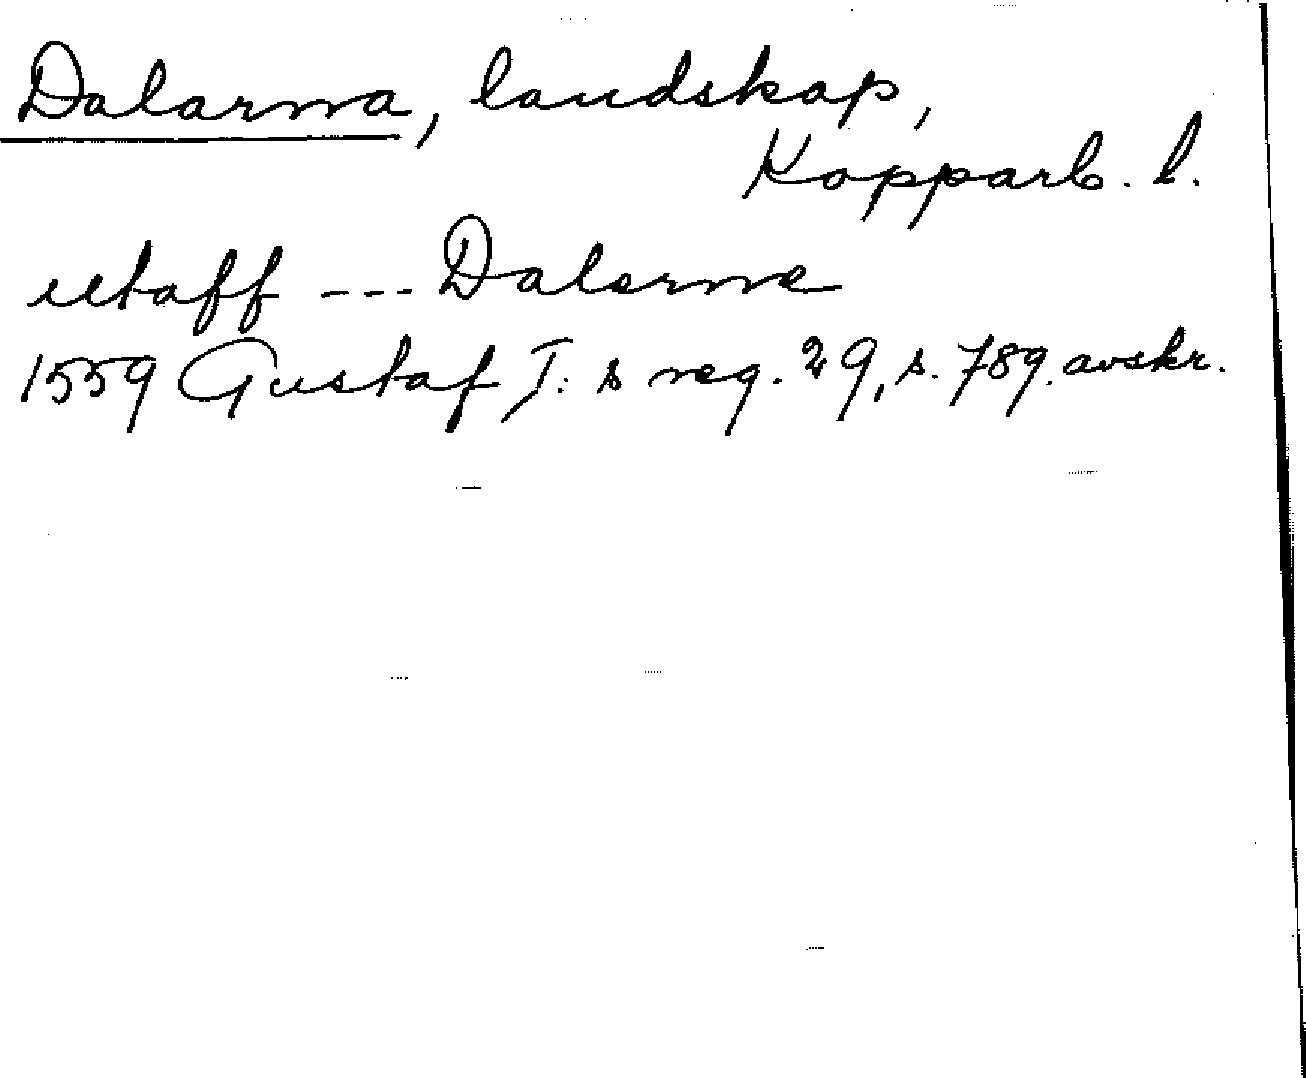 Dalarna, landskap,
Kopparb. l.
utaff --- Dalerne
1559 Gustaf I:s reg. 29, s. 789. avskr.